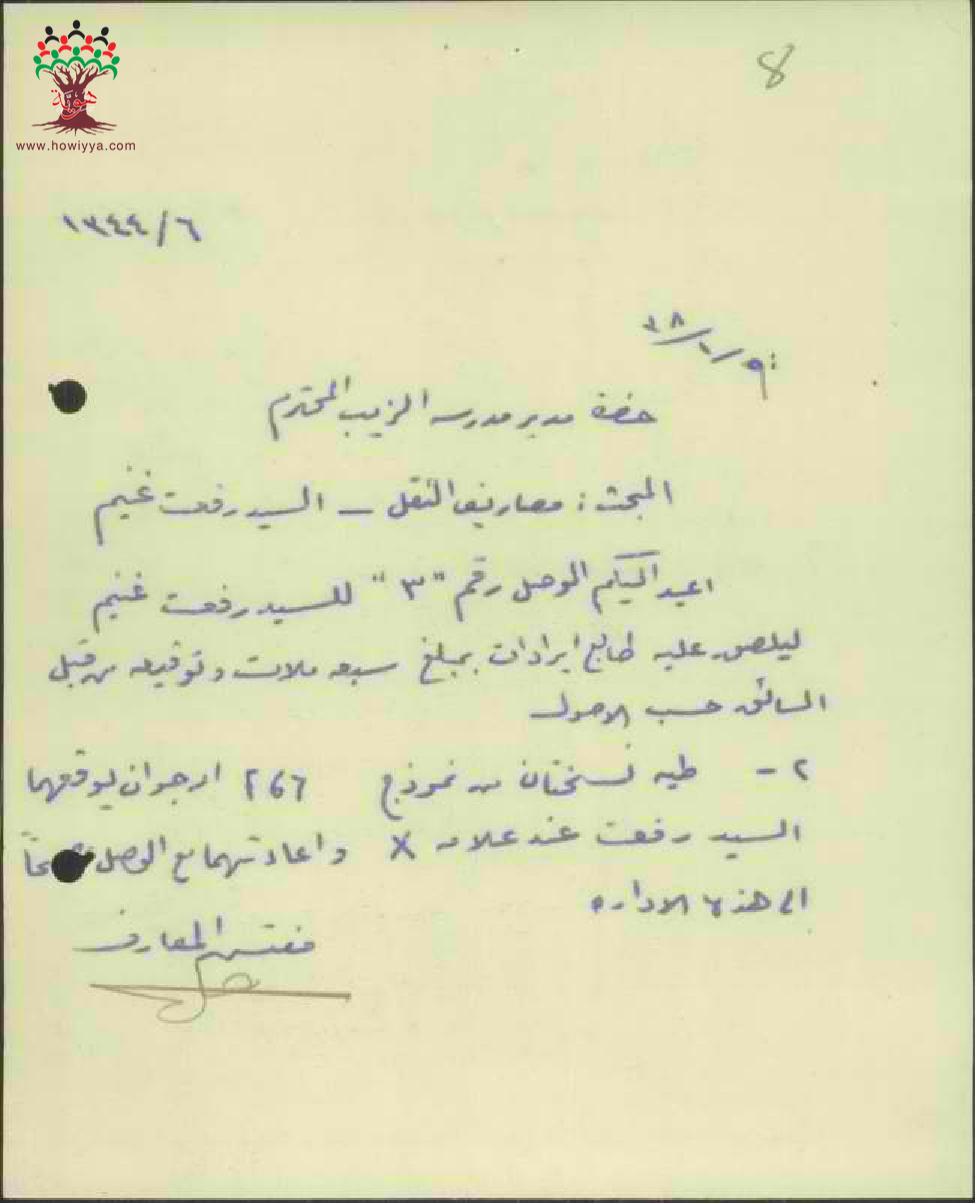 8
هوية
www.howiyya.com
١٣٤٤/٦
حضرة مدير مدرسة الزيب المحترم
المبحث : مصاريف النقل – السيد رفعت غنيم
اعيد اليكم الوصل رقم "٣" للسيد رفعت غنيم
ليلصق عليه طابع ايرادات بمبلغ سبعه ملات وتوقيعه من قبل
السائق حسب الاصول
٢ - طيه نسختان من نموذج ٢٦٧ ارجو ان يوقعهما
السيد رفعت عند علامه X واعادتهما مع الوصل
الى هذه الاداره
مفتش المعارف